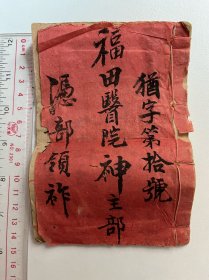 猶字第拾號
福田醫院神主部
憑部領祚